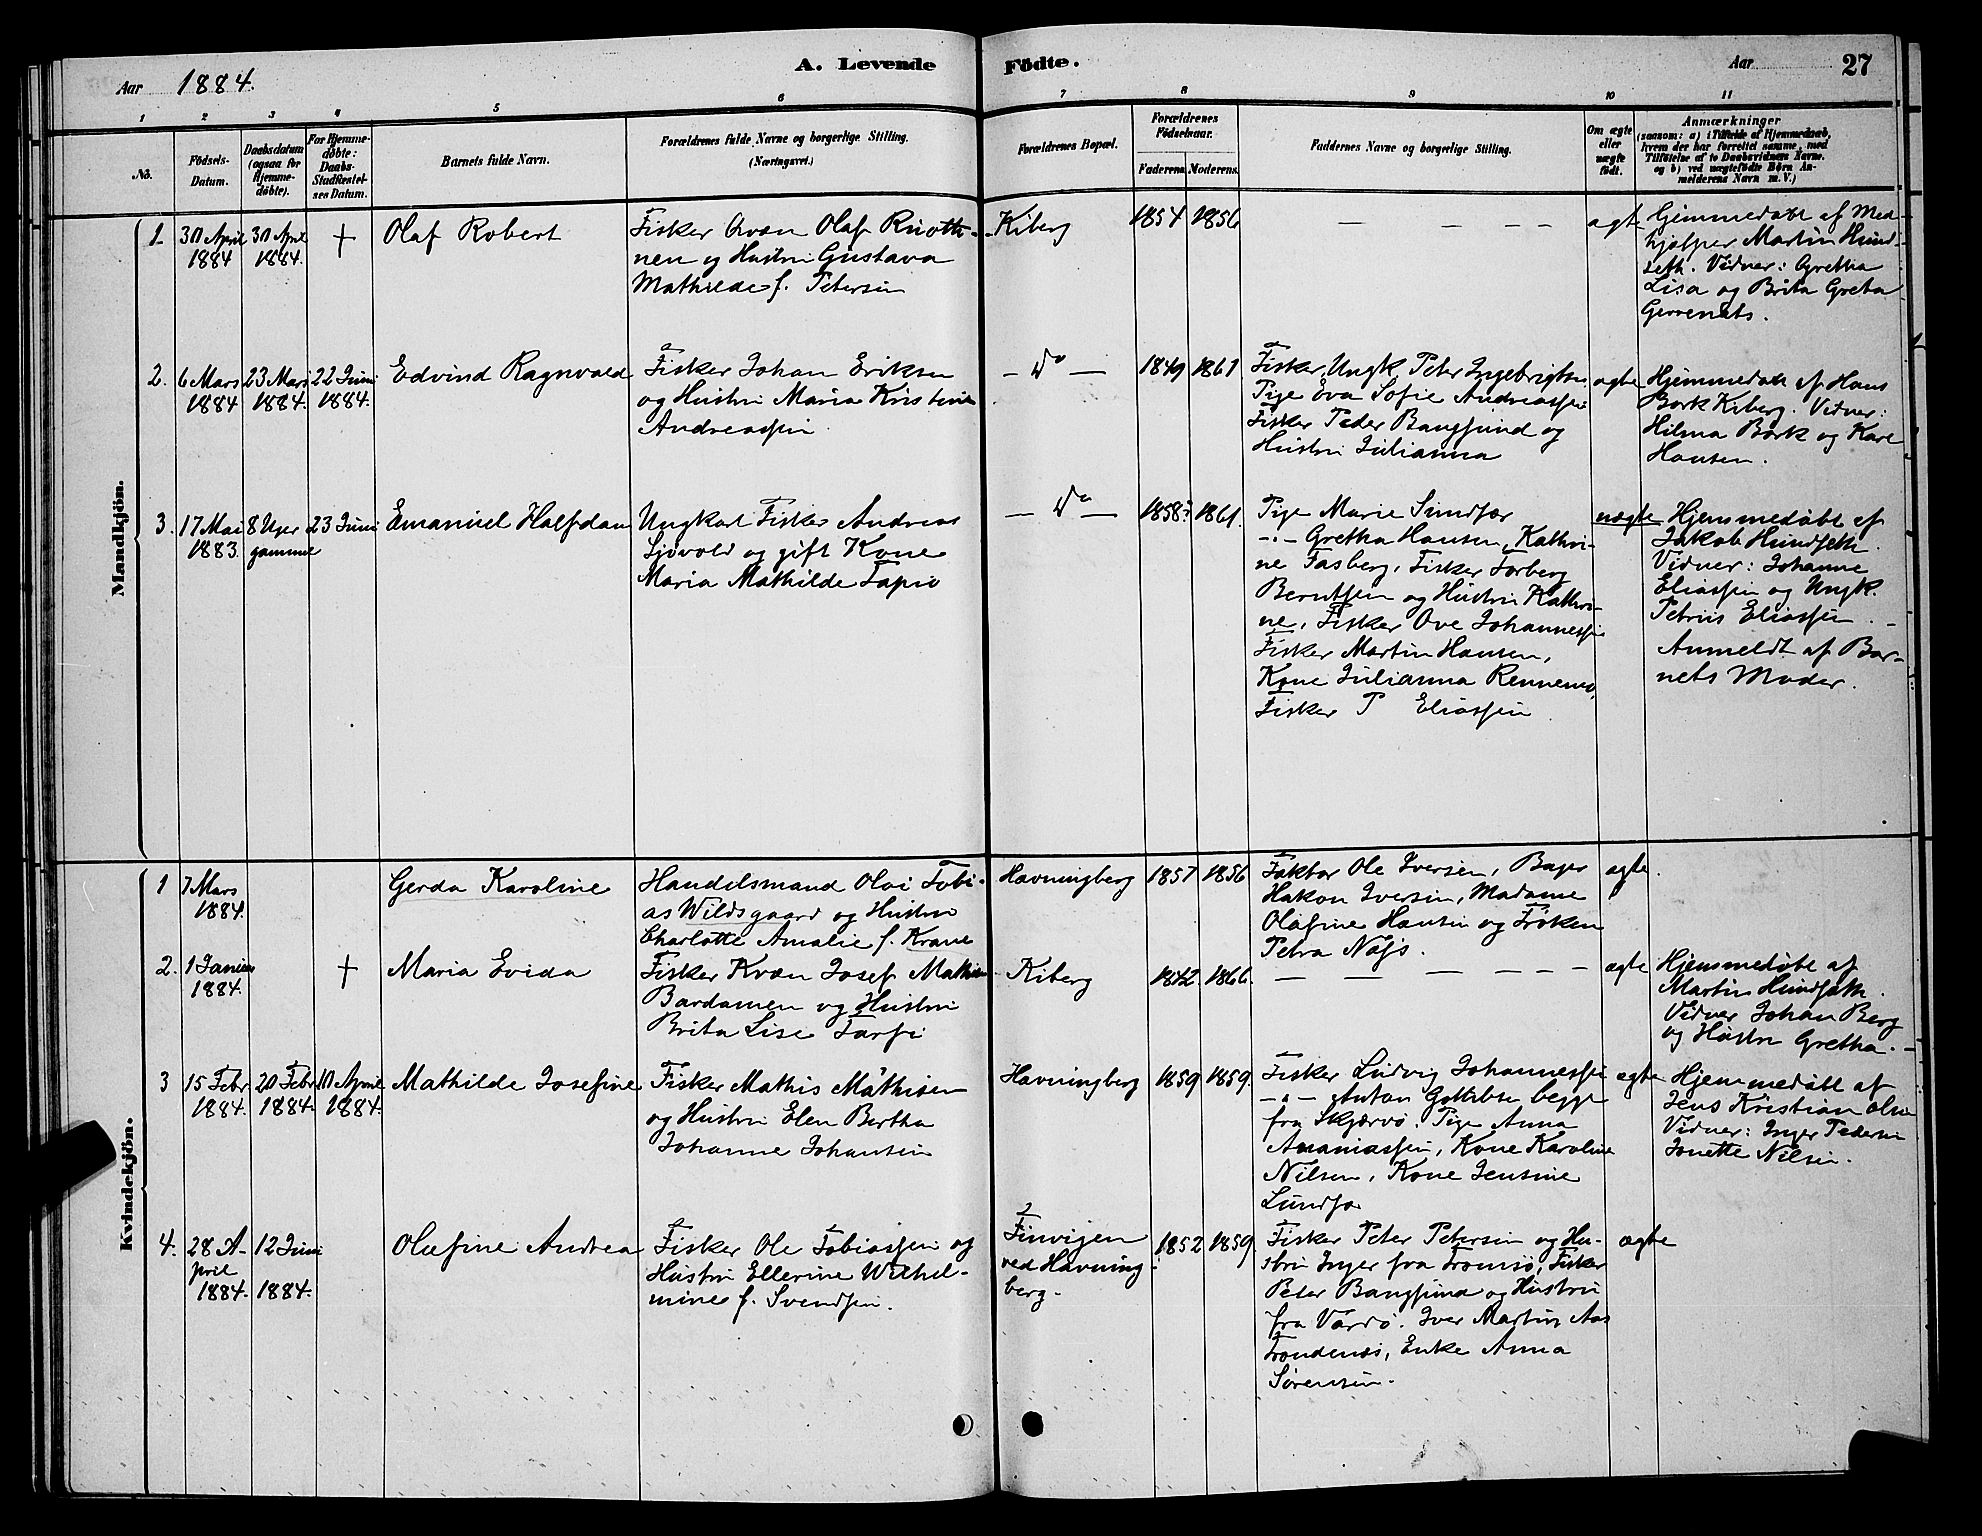 A. Levende Födte.
Aar 1884.
Aar
27
1 2 3 4 5 6 7 8 9 10 11
No.
Födsels-
Datum.
Daabsdatum
(ogsaa for
Hjemme-
döbte).
For Hjemme-
döbte:
Daabs
Stadfæstel-
ses Datum.
Barnets fulde Navn.
Forældrenes fulde Navne og borgerlige Stilling.
(Næringsvei.)
Forældrenes Bopæl.
Forældrenes
Födselsaar.
Faderens. Moderens.
Faddernes Navne og borgerlige Stilling.
Om ægte
eller
uægte
födt.
Anmærkninger
(saasom: a) i Tilfælde af Hjemmedaab,
hvem der har forrettet samme, med
Tilföielse af to Daabsvidners Navne.
og b) ved uægtefödte Börn An-
melderens Navn m. V.)
Mandkjön.
1.
30 April
1884
30 April
1884.
+
Olaf Robert
Fisker Qvæn Olaf
nen og Hustru Gustava
Mathilde f. Petersen
Kiberg
1854
1856
— — — —
ægte
Hjemmedøbt af Med-
hjælper Martin Hund-
seth. Vidner: Gretha
Lisa og Brita Greta
2.
6 Mars
1884
23 Mars
1884.
22 Juni
1884.
Edvind Ragnvald
Fisker Johan Eriksen
og Hustru Maria Kristine
Andreassen
— Do —
1849
1861
Fisker Ungk. Peter Ingebrigtsen
Pige Eva Sofie Andreassen
Fisker Peder Bangsund og
Hustru Julianna
ægte
Hjemmedøbt af Hans
Bork Kiberg. Vidner:
Hilma Bork og Kare
Hansen.
3.
17 Mai
1883.
8 Uger
gammel
23 Juni
Emanuel Halfdan
Ungkarl Fisker Andreas
Sjøvold og gift Kone
Maria Mathilde Tapio
— Do —
1858?
1861.
Pige Marie Sundfær
-"- Gretha Hansen, Kathri-
ne Fasberg, Fisker Torberg
Berntsen og Hustru Kathri-
ne, Fisker Ove Johannessen
Fisker Martin Hansen,
Kone Julianna Rennemo,
Fisker P Eliassen
uægte
Hjemmedøbt af
Jakob Hundseth.
Vidner: Johanne
Eliassen og Ungk.
Petrus Eliassen.
Anmeldt af Bar-
nets Moder.
Kvindekjön.
1
7 Mars
1884.
Gerda Karoline
Handelsmand Olai Tobi-
as Wildsgaard og Hustru
Charlotte Amalie f. Krane
Havningberg
1857
1856
Faktor Ole Iversen, Bager
Hakon Iversen, Madame
Olafine Hansen og Frøken
Petra Nøis.
ægte.
2.
1 Januar
1884.
+
Maria Evida
Fisker Kvæn Josef Mathisen
Bardamen og Hustru
Brita Lise Tarfi
Kiberg
1842
1866.
— — — — — —
ægte
Hjemmedøbt af
Martin Hundseth.
Vidner Johan Berg
og Hustru Gretha.
3
15 Febr
1884.
20 Febr
1884.
10 April
1884.
Mathilde Josefine
Fisker Mathis Mathisen
og Hustru Elen Bertha
Johanne Johansen
Havningberg
1859
1859.
Fisker Ludvig Johannessen
-"- Anton Gottlibsen begge
fra Skjærvø. Pige Anna
Ananiassen, Kone Karoline
Nilsen, Kone Jensine
Lundfor
ægte
Hjemmedøbt af
Jens Kristian Olsen
Vidner: Inger Pedersen
Jonette Nilsen.
4.
28 A-
pril
1884.
12 Juni
1884.
Olufine Andrea
Fisker Ole Tobiassen og
Hustru Ellerine Wilhel-
mine f. Svendsen.
Finvigen
ved Havning-
berg.
1852
1859.
Fisker Peter Petersen og Hu-
stru Inger fra Tromsø, Fisker
Peter Bangsund og Hustru
fra Vardø. Iver Martin Aas
Trondenæs, Enke Anna
Sørensen.
ægte